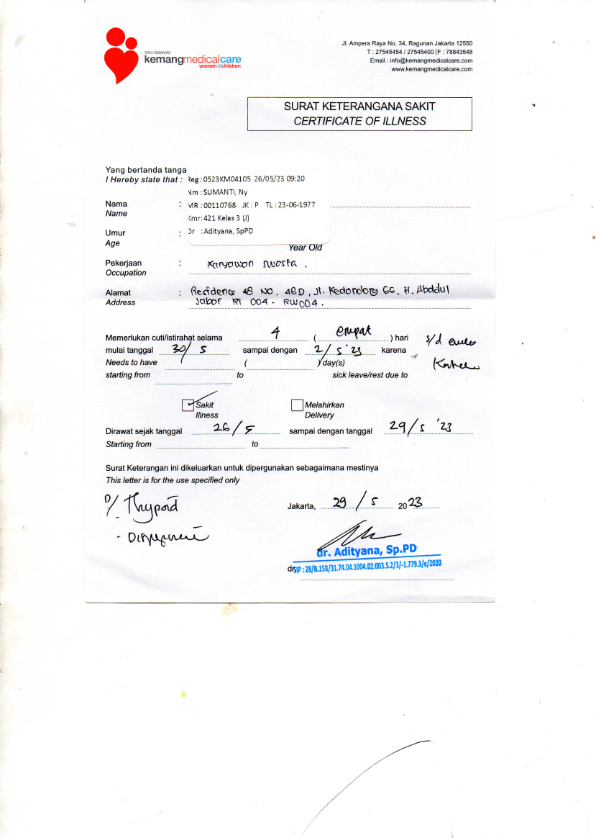 RSIA KEMANG
kemangmedicalcare
women&children
Jl. Ampera Raya No. 34, Ragunan Jakarta 12550
T : 27545454 / 27545400 | F : 78843548
Email : info@kemangmedicalcare.com
www.kemangmedicalcare.com
SURAT KETERANGANA SAKIT
CERTIFICATE OF ILLNESS
Yang bertanda tanga
I Hereby state that : Reg : 0523KM04105 26/05/23 09:20
Nm : SUMANTI, Ny
Nama : MR : 00110768 JK : P TL : 23-06-1977
Name
Kmr: 421 Kelas 3 (J)
Umur : Dr : Adityana, SpPD
Age
Year Old
Pekerjaan : Karyawan swasta.
Occupation
Alamat : Residence 48 NO. 48D, Jl. Kedondong GG. H. Abddul
Address Jabar RT 004 - RW004.
Memerlukan cuti/istirahat selama 4 ( empat ) hari s/d
mulai tanggal 30/5 sampai dengan 2/5 '23 karena
Needs to have ( ) day(s)
starting from to sick leave/rest due to
Sakit Melahirkan
Illness Delivery
Dirawat sejak tanggal 26/5 sampai dengan tanggal 29/5 '23
Starting from to
Surat Keterangan ini dikeluarkan untuk dipergunakan sebagaimana mestinya
This letter is for the use specified only
D/ Thypoid
Jakarta, 29 / 5 2023
dr. Adityana, Sp.PD
SIP : 28/B.158/31.74.04.1004.02.003.S.2/3/-1.779.3/e/2020